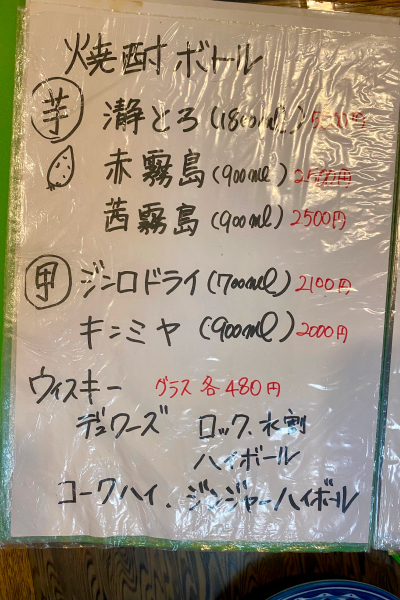 焼酎ボトル
芋 瀞とろ(1800ml)
赤霧島(900ml) 2500円
茜霧島(900ml) 2500円
甲 ジンロドライ(700ml) 2100円
キンミヤ(900ml) 2000円
ウィスキー グラス各480円
デュワーズ ロック、水割
ハイボール
コークハイ、ジンジャーハイボール